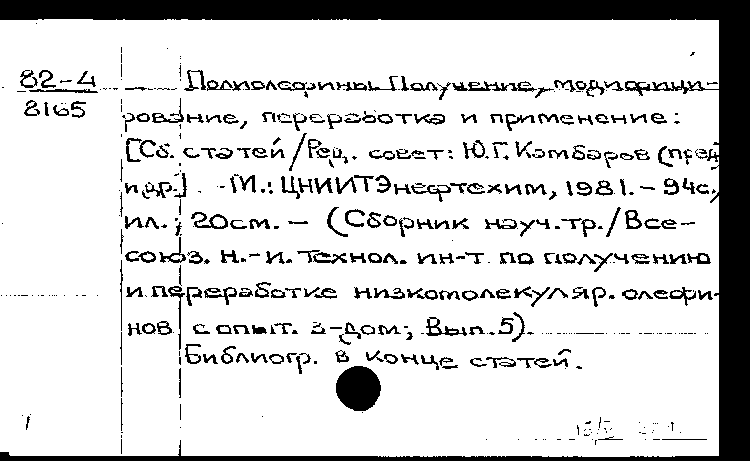 82-4
8165
Полиолефины. Получение, модифици-
рование, переработка и применение:
[Сб. статей/Ред. совет: Ю.Г. Камбаров (пред.)
и др.]. - М.: ЦНИИТЭнефтехим, 1981. - 94с.,
ил.; 20см. - (Сборник науч.тр./Все-
союз. н.-и. технол. ин-т по получению
и переработке низкомолекуляр. олефи-
нов с опыт. з-дом; Вып.5).
Библиогр. в конце статей.